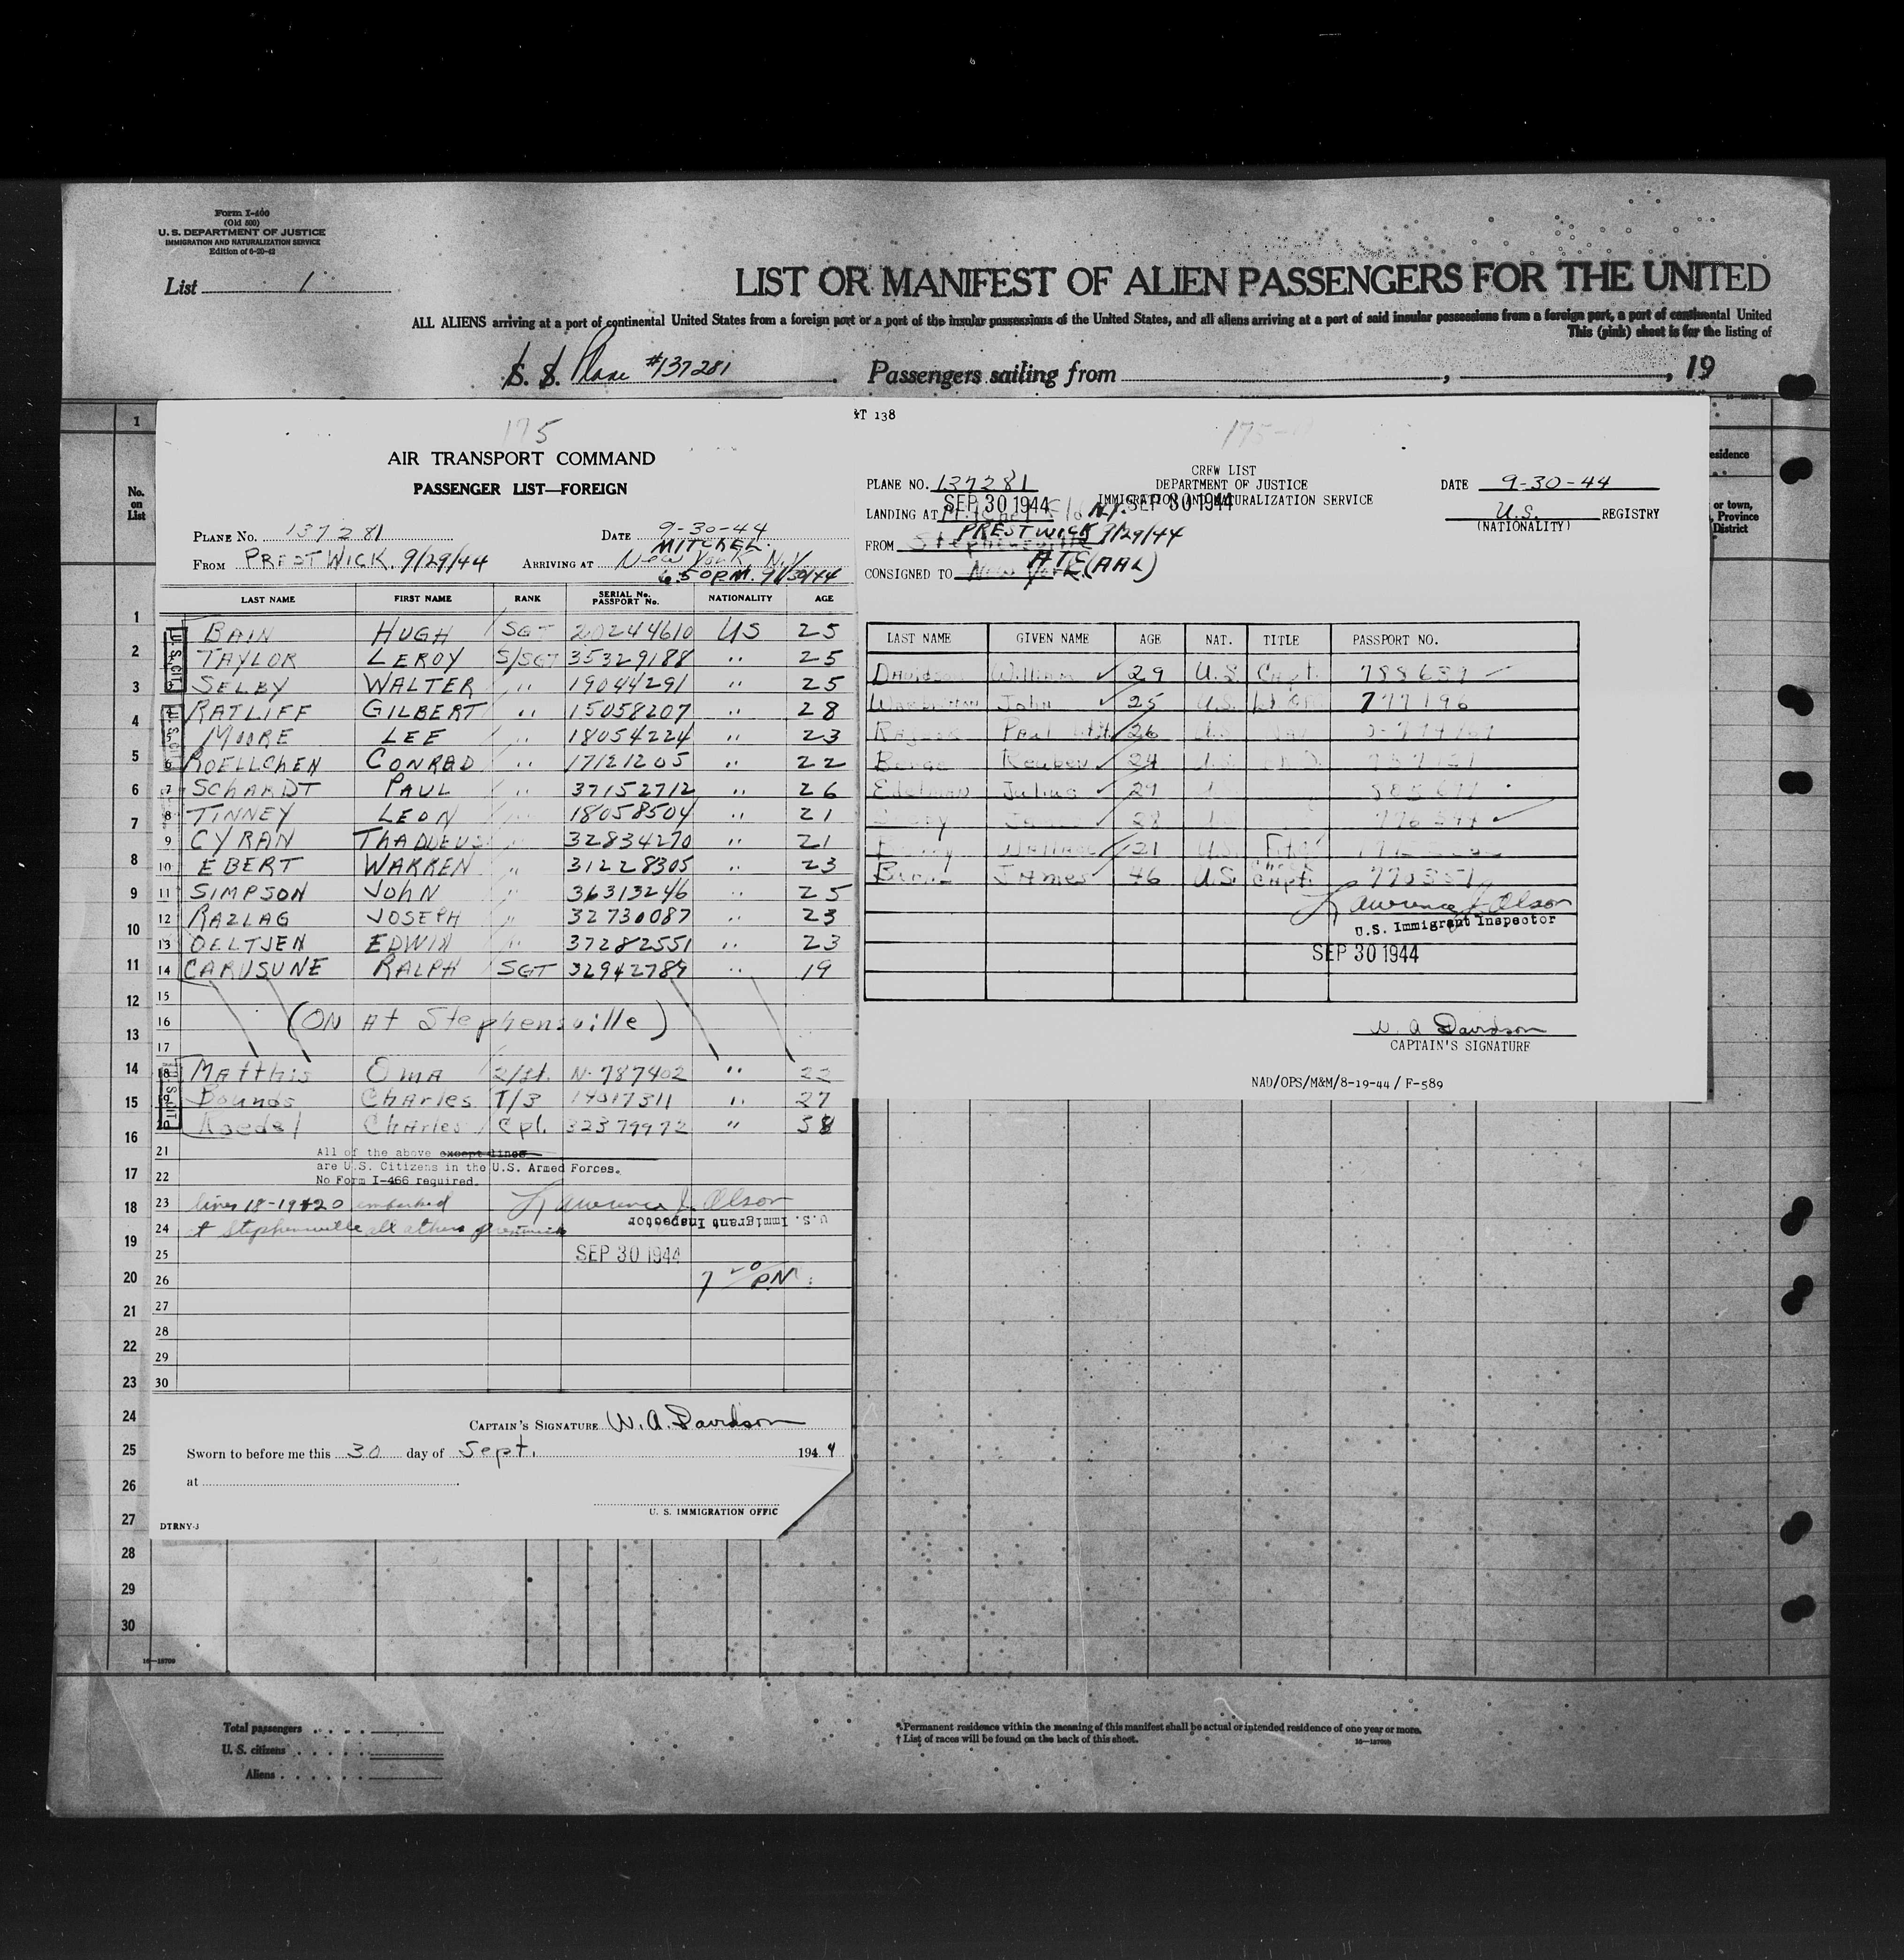 Form I-400
(Old 500)
U. S. DEPARTMENT OF JUSTICE
IMMIGRATION AND NATURALIZATION SERVICE
Edition of 6-20-42
List 1
LIST OR MANIFEST OF ALIEN PASSENGERS FOR THE UNITED
ALL ALIENS arriving at a port of continental United States from a foreign port or a port of the insular possessions of the United States, and all aliens arriving at a port of said insular possessions from a foreign port, a port of continental United
This (pink) sheet is for the listing of
S. S. Plane #137281 Passengers sailing from , , 19
175
AIR TRANSPORT COMMAND
PASSENGER LIST—FOREIGN
PLANE NO. 137281 DATE 9-30-44
MITCHEL.
FROM PRESTWICK. 9/29/44 ARRIVING AT New York N.Y.
6:50 PM. 9/30/44
LAST NAME FIRST NAME RANK SERIAL No. PASSPORT No. NATIONALITY AGE
BAIN HUGH SGT 20244610 US 25
TAYLOR LEROY S/SGT 35329188 " 25
SELBY WALTER " 19044291 " 25
RATLIFF GILBERT " 15058207 " 28
MOORE LEE " 18054224 " 23
6 ROELLCHEN CONRAD " 17121205 " 22
7 SCHARDT PAUL " 37152712 " 26
8 TINNEY LEON " 18058504 " 21
9 CYRAN THADDEUS " 32834270 " 21
10 EBERT WARREN " 31228305 " 23
11 SIMPSON JOHN " 36313246 " 25
12 RAZLAG JOSEPH " 32730087 " 23
13 OELTJEN EDWIN " 37282551 " 23
14 CARUSUNE RALPH SGT 32942789 " 19
15
16 (ON At Stephensville)
17
18 Matthis Oma 2/Lt. N-787402 " 22
19 Bounds Charles T/3 14017311 " 27
20 Roedel Charles Cpl. 32379972 " 38
21 All of the above except lines
are U.S. Citizens in the U.S. Armed Forces.
22 No Form I-466 required.
23 lines 18-19+20 embarked Lawrence J. Olson
24 at Stephenville all others Prestwick U.S. Immigrant Inspector
25 SEP 30 1944
26 7 20 PM.
27
28
29
30
CAPTAIN'S SIGNATURE W. A. Davidson
Sworn to before me this 30 day of Sept. 1944
at
U. S. IMMIGRATION OFFIC
DTRNY-3
T 138
175
CREW LIST
PLANE NO. 137281 DEPARTMENT OF JUSTICE DATE 9-30-44
SEP 30 1944 IMMIGRATION AND NATURALIZATION SERVICE SEP 30 1944
LANDING AT Mitchel Fld N.Y. U.S. REGISTRY
(NATIONALITY)
PRESTWICK 9/29/44
FROM Stephensville
ATC (AAL)
CONSIGNED TO New York
LAST NAME GIVEN NAME AGE NAT. TITLE PASSPORT NO.
Davidson William 29 U.S. Capt.
John 25 U.S. 777196
Paul 26
Reuben 24
Edelman Julius 29
28
Wallace 21 U.S.
James 46 U.S. Capt. 770351
Lawrence J. Olson
U.S. Immigrant Inspector
SEP 30 1944
W. A. Davidson
CAPTAIN'S SIGNATURE
NAD/OPS/M&M/8-19-44/ F-589
No. on List
1
2
3
4
5
6
7
8
9
10
11
12
13
14
15
16
17
18
19
20
21
22
23
24
25
26
27
28
29
30
esidence
or town,
, Province
District
Total passengers
U. S. citizens
Aliens
*Permanent residence within the meaning of this manifest shall be actual or intended residence of one year or more.
† List of races will be found on the back of this sheet.